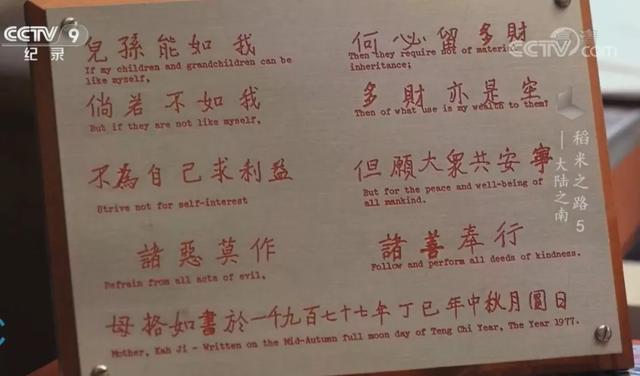 CCTV 9
纪录
CCTV.com
兒孫能如我
If my children and grandchildren can be
like myself,
何必留多財
Then they require not of material
inheritance;
倘若不如我
But if they are not like myself,
多財亦是空
Then of what use is my wealth to them?
不為自己求利益
Strive not for self-interest
但願大眾共安寧
But for the peace and well-being of
all mankind.
諸惡莫作
Refrain from all acts of evil,
諸善奉行
Follow and perform all deeds of kindness.
母格如書於一千九百七十七年丁巳年中秋月圓日
Mother, Kah Ji - Written on the Mid-Autumn full moon day of Teng Chi Year, The Year 1977.
稻米之路 5
——大陆之南